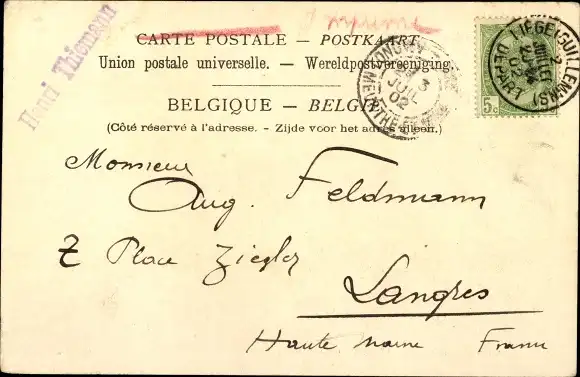 Imprimé
Henri Thiemann
CARTE POSTALE — POSTKAART.
Union postale universelle. — Wereldpostvereeniging.
BELGIQUE — BELGIE
(Côté réservé à l'adresse. - Zijde voor het adres alleen.)
5c
LIÉGE (GUILLEMINS)
2 JUIL
1902
DÉPART
3
JUIL
02
MEURTHE
Monsieur
Aug. Feldmann
7 Place Ziegler
Langres
Haute Marne France